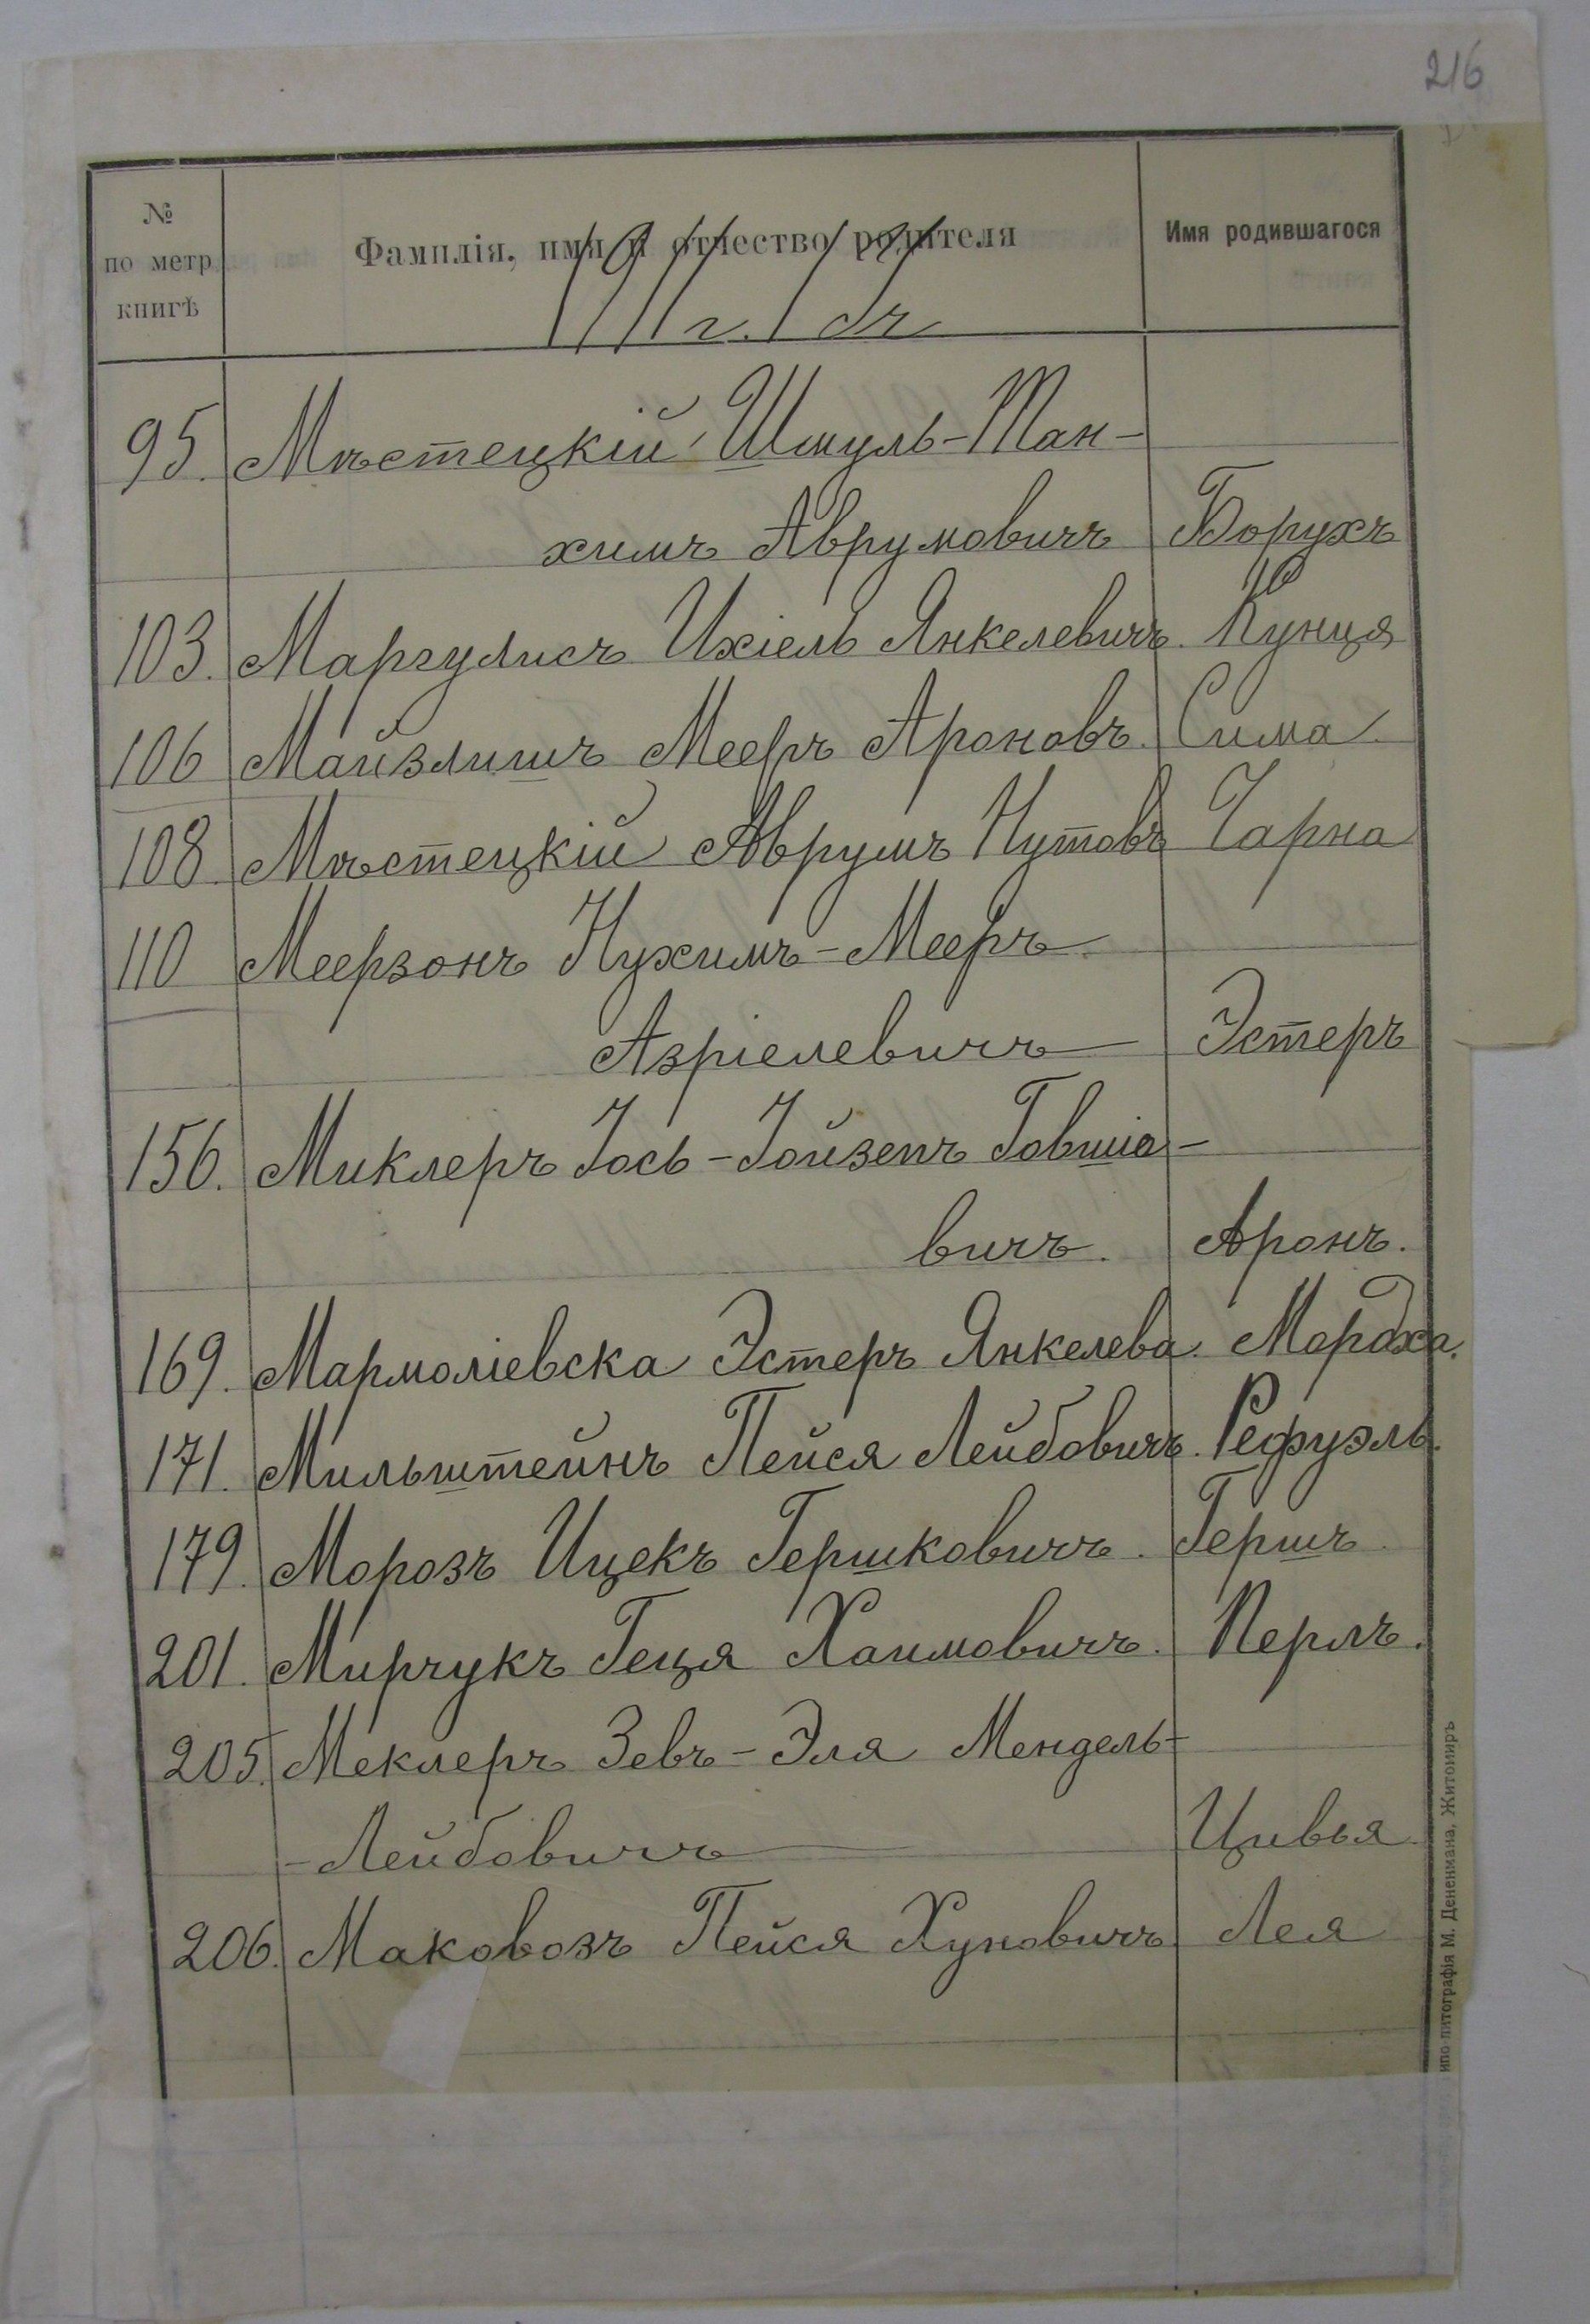 216
№ по метр книгѣ
Фамилія, имя и отчество родителя
Имя родившагося
1911 г.
95. Мѣстецкій Шмуль-Тан-
химъ Аврумовичъ Борухъ
103. Маргулисъ Ихіель Янкелевичъ. Кунця
106 Майзлишъ Мееръ Ароновъ. Сима.
108 Мѣстецкій Аврумъ Нутовъ Чарна
110 Меерзонъ Нухимъ-Мееръ
Азріелевичъ Эстеръ
156. Миклеръ Іось-Іойзепъ Говшіа-
вичъ. Аронъ.
169. Мармоліевска Эстеръ Янкелева. Мордха.
171. Мильштейнъ Пейся Лейбовичъ. Рефуэль.
179. Морозъ Ицекъ Гершковичъ. Гершъ.
201. Мирчукъ Геця Хаимовичъ. Перлъ.
205. Меклеръ Зевъ-Эля Мендель-
-Лейбовичъ Цивья.
206. Маковозъ Пейся Хуновичъ Лея
ипо литографія М. Дененмана, Житомиръ